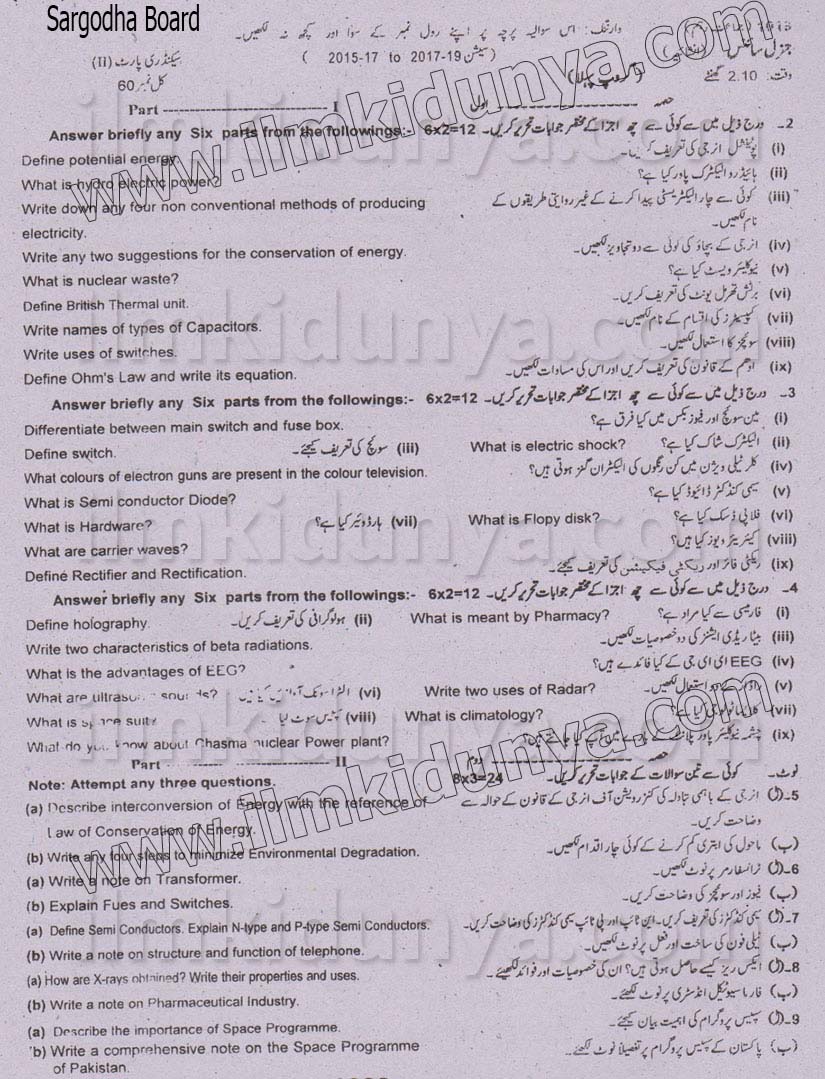 Sargodha Board
وارننگ: اس سوالیہ پرچہ پر اپنے رول نمبر کے سوا اور کچھ نہ لکھیں۔
جنرل سائنس (سیشن 2017-19 to 2015-17) سیکنڈری پارٹ (II)
وقت: 2.10 گھنٹے (گروپ پہلا) کل نمبر 60
Part ------------------------------ I حصہ ------------------------ اول
Answer briefly any Six parts from the followings:- 6x2=12 2۔ درج ذیل میں سے کوئی سے چھ اجزا کے مختصر جوابات تحریر کریں۔
Define potential energy. (i) پوٹینشل انرجی کی تعریف کریں۔
What is hydro electric power? (ii) ہائیڈرو الیکٹرک پاور کیا ہے؟
Write down any four non conventional methods of producing (iii) کوئی سے چار الیکٹریسٹی پیدا کرنے کے غیر روایتی طریقوں کے
electricity. نام لکھیں۔
Write any two suggestions for the conservation of energy. (iv) انرجی کے بچاؤ کی کوئی سے دو تجاویز لکھیں۔
What is nuclear waste? (v) نیوکلیئر ویسٹ کیا ہے؟
Define British Thermal unit. (vi) برٹش تھرمل یونٹ کی تعریف کریں۔
Write names of types of Capacitors. (vii) کپیسٹرز کی اقسام کے نام لکھیں۔
Write uses of switches. (viii) سوئچز کا استعمال لکھیں۔
Define Ohm's Law and write its equation. (ix) اوھم کے قانون کی تعریف کریں اور اس کی مساوات لکھیں۔
Answer briefly any Six parts from the followings:- 6x2=12 3۔ درج ذیل میں سے کوئی سے چھ اجزا کے مختصر جوابات تحریر کریں۔
Differentiate between main switch and fuse box. (i) مین سوئچ اور فیوز بکس میں کیا فرق ہے؟
Define switch. (iii) سوئچ کی تعریف کیجئے۔ What is electric shock? (ii) الیکٹرک شاک کیا ہے؟
What colours of electron guns are present in the colour television. (iv) کلر ٹیلی ویژن میں کن رنگوں کی الیکٹران گنز ہوتی ہیں؟
What is Semi conductor Diode? (v) سیمی کنڈکٹر ڈائیوڈ کیا ہے؟
What is Hardware? (vii) ہارڈ وئیر کیا ہے؟ What is Flopy disk? (vi) فلاپی ڈسک کیا ہے؟
What are carrier waves? (viii) کیریئر ویوز کیا ہیں؟
Define Rectifier and Rectification. (ix) ریکٹی فائر اور ریکٹی فیکیشن کی تعریف کیجئے۔
Answer briefly any Six parts from the followings:- 6x2=12 4۔ درج ذیل میں سے کوئی سے چھ اجزا کے مختصر جوابات تحریر کریں۔
Define holography. (ii) ہولوگرافی کی تعریف کریں۔ What is meant by Pharmacy? (i) فارمیسی سے کیا مراد ہے؟
Write two characteristics of beta radiations. (iii) بیٹا ریڈی ایشنز کی دو خصوصیات لکھیں۔
What is the advantages of EEG? (iv) EEG ای ای جی کے کیا فائدے ہیں؟
What are ultrasonic sounds? (vi) الٹرا سونک آوازیں کیا ہیں Write two uses of Radar? (v) کے دو استعمال لکھیں۔
What is space suit? (viii) سپیس سوٹ کیا What is climatology? (vii) کیا ہے؟
What do you know about Chasma nuclear Power plant? (ix) چشمہ نیوکلیئر پاور پلانٹ کے بارے میں آپ کیا جانتے ہیں؟
Part ------------------ II حصہ ------------------ دوم
Note: Attempt any three questions. 8x3=24 نوٹ۔ کوئی سے تین سوالات کے جوابات تحریر کریں۔
(a) Describe interconversion of Energy with the reference of 5۔(ا) انرجی کے باہمی تبادلہ کی کنزرویشن آف انرجی کے قانون کے حوالہ سے
Law of Conservation of Energy. وضاحت کریں۔
(b) Write any four steps to minimize Environmental Degradation. (ب) ماحول کی ابتری کم کرنے کے کوئی چار اقدام لکھیں۔
(a) Write a note on Transformer. 6۔(ا) ٹرانسفارمر پر نوٹ لکھیں۔
(b) Explain Fues and Switches. (ب) فیوز اور سوئچز کی وضاحت کریں۔
(a) Define Semi Conductors. Explain N-type and P-type Semi Conductors. 7۔(ا) سیمی کنڈکٹرز کی تعریف کریں۔ این ٹائپ اور پی ٹائپ سیمی کنڈکٹرز کی وضاحت کریں۔
(b) Write a note on structure and function of telephone. (ب) ٹیلی فون کی ساخت اور فعل پر نوٹ لکھیں۔
(a) How are X-rays obtained? Write their properties and uses. 8۔(ا) ایکس ریز کیسے حاصل ہوتی ہیں؟ ان کی خصوصیات اور فوائد لکھیئے۔
(b) Write a note on Pharmaceutical Industry. (ب) فارماسیوٹیکل انڈسٹری پر نوٹ لکھیئے۔
(a) Describe the importance of Space Programme. 9۔(ا) سپیس پروگرام کی اہمیت بیان کیجئے۔
(b) Write a comprehensive note on the Space Programme (ب) پاکستان کے سپیس پروگرام پر تفصیلاً نوٹ لکھیئے۔
of Pakistan.
www.ilmkidunya.com
www.ilmkidunya.com
ilmkidunya.com
ilmkidunya.com
ilmkidunya.com
ilmkidunya.com
ilmkidunya.com